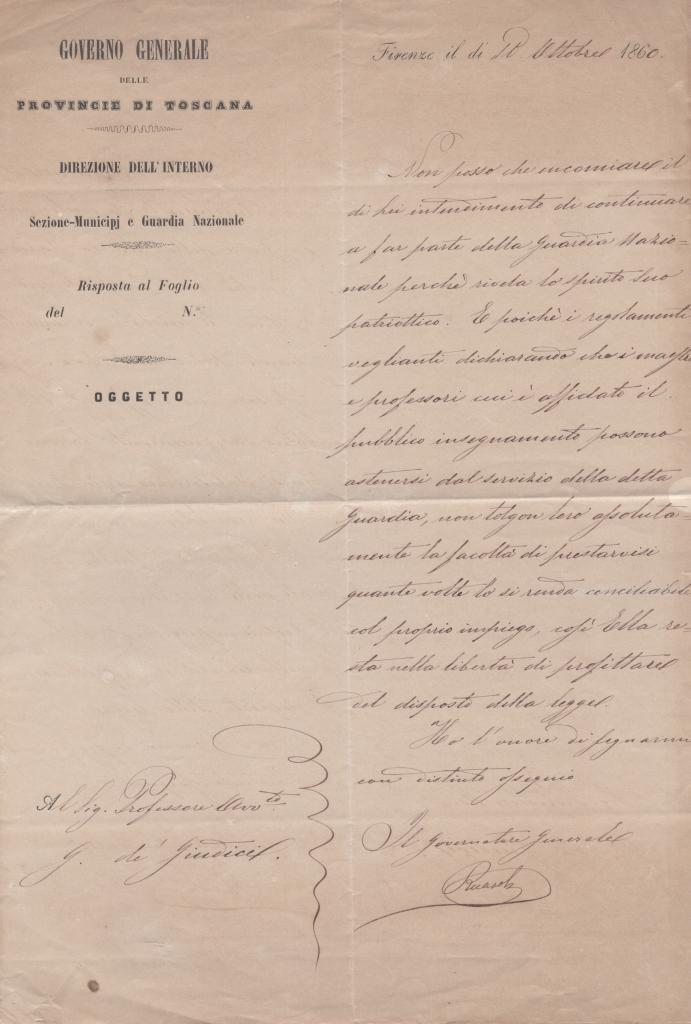 GOVERNO GENERALE
DELLE
PROVINCIE DI TOSCANA
DIREZIONE DELL'INTERNO
Sezione-Municipj e Guardia Nazionale
Risposta al Foglio
del N.°
OGGETTO
Firenze il di Ottobre 1860.
Non posso che encomiare il
di Lei intendimento di continuare
a far parte della Guardia Nazio=
nale perchè rivela lo spirito Suo
patriottico. E poichè i regolamenti
veglianti dichiarando che i maestri
e professori cui è affidato il
pubblico insegnamento possono
astenersi dal servizio della detta
Guardia, non tolgon loro assoluta=
mente la facoltà di prestarvisi
quante volte lo si renda conciliabile
col proprio impiego, così Ella re=
sta nella libertà di profittare
del disposto della legge.
Ho l'onore di segnarmi
con distinto ossequio
Il Governatore Generale
Ricasoli
Al Sig. Professore Avv.to
G. de' Giudici.